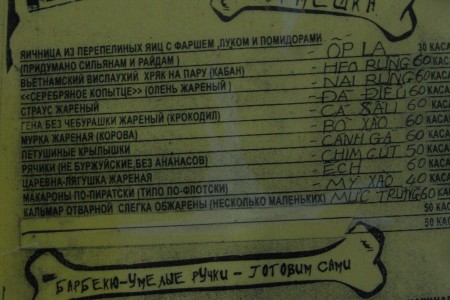 ЯИЧНИЦА ИЗ ПЕРЕПЕЛИНЫХ ЯИЦ С ФАРШЕМ ,ЛУКОМ И ПОМИДОРАМИ - ỐP LA 30 КАСА
(ПРИДУМАНО СИЛЬЯНАМ И РАЙДАМ ) - HEO RỪNG 60 КАСА
ВЬЕТНАМСКИЙ ВИСЛАУХИЙ ХРЯК НА ПАРУ (КАБАН) - NAI RỪNG 60 КАСА
<<СЕРЕБРЯНОЕ КОПЫТЦЕ>> (ОЛЕНЬ ЖАРЕНЫЙ ) - ĐÀ ĐIỂU 60 КАСА
СТРАУС ЖАРЕНЫЙ - CÁ SẤU 60 КАСА
ГЕНА БЕЗ ЧЕБУРАШКИ ЖАРЕНЫЙ (КРОКОДИЛ) - BÒ XÀO 60 КАСА
МУРКА ЖАРЕНАЯ (КОРОВА) - CÁNH GÀ 60 КАСА
ПЕТУШИНЫЕ КРЫЛЫШКИ - CHIM CÚT 50 КАСА
РЯЧИКИ (НЕ БУРЖУЙСКИЕ,БЕЗ АНАНАСОВ) - ẾCH 60 КАСА
ЦАРЕВНА-ЛЯГУШКА ЖАРЕНАЯ - MỲ XÀO 40 КАСА
МАКАРОНЫ ПО-ПИРАТСКИ (ТИПО ПО-ФЛОТСКИ) - MỰC TRỨNG 60 КАСА
КАЛЬМАР ОТВАРНОЙ СЛЕГКА ОБЖАРЕНЫ (НЕСКОЛЬКО МАЛЕНЬКИХ) 50 КАСА
50 КАСА
БАРБЕКЮ-УМЕЛЫЕ РУЧКИ - ГОТОВИМ САМИ